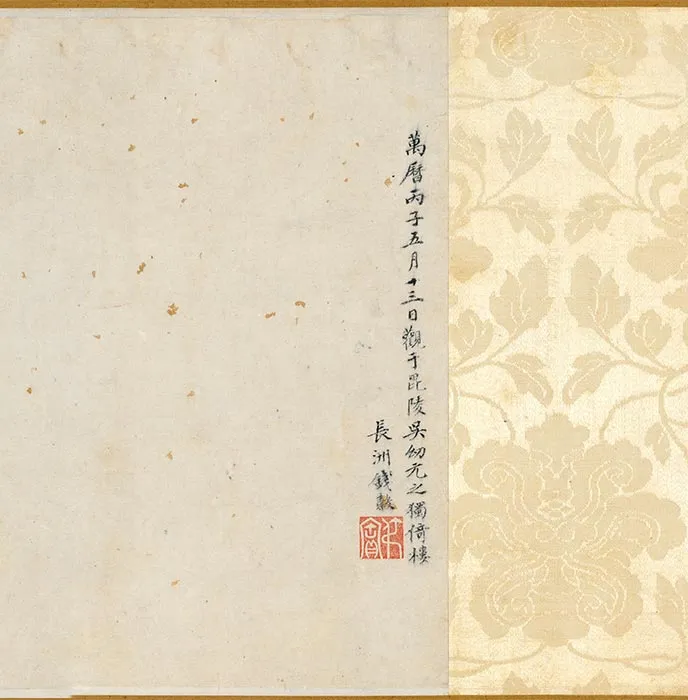 萬曆丙子五月十三日觀于毘陵吳幼元之獨倚樓
長洲錢穀
叔寶